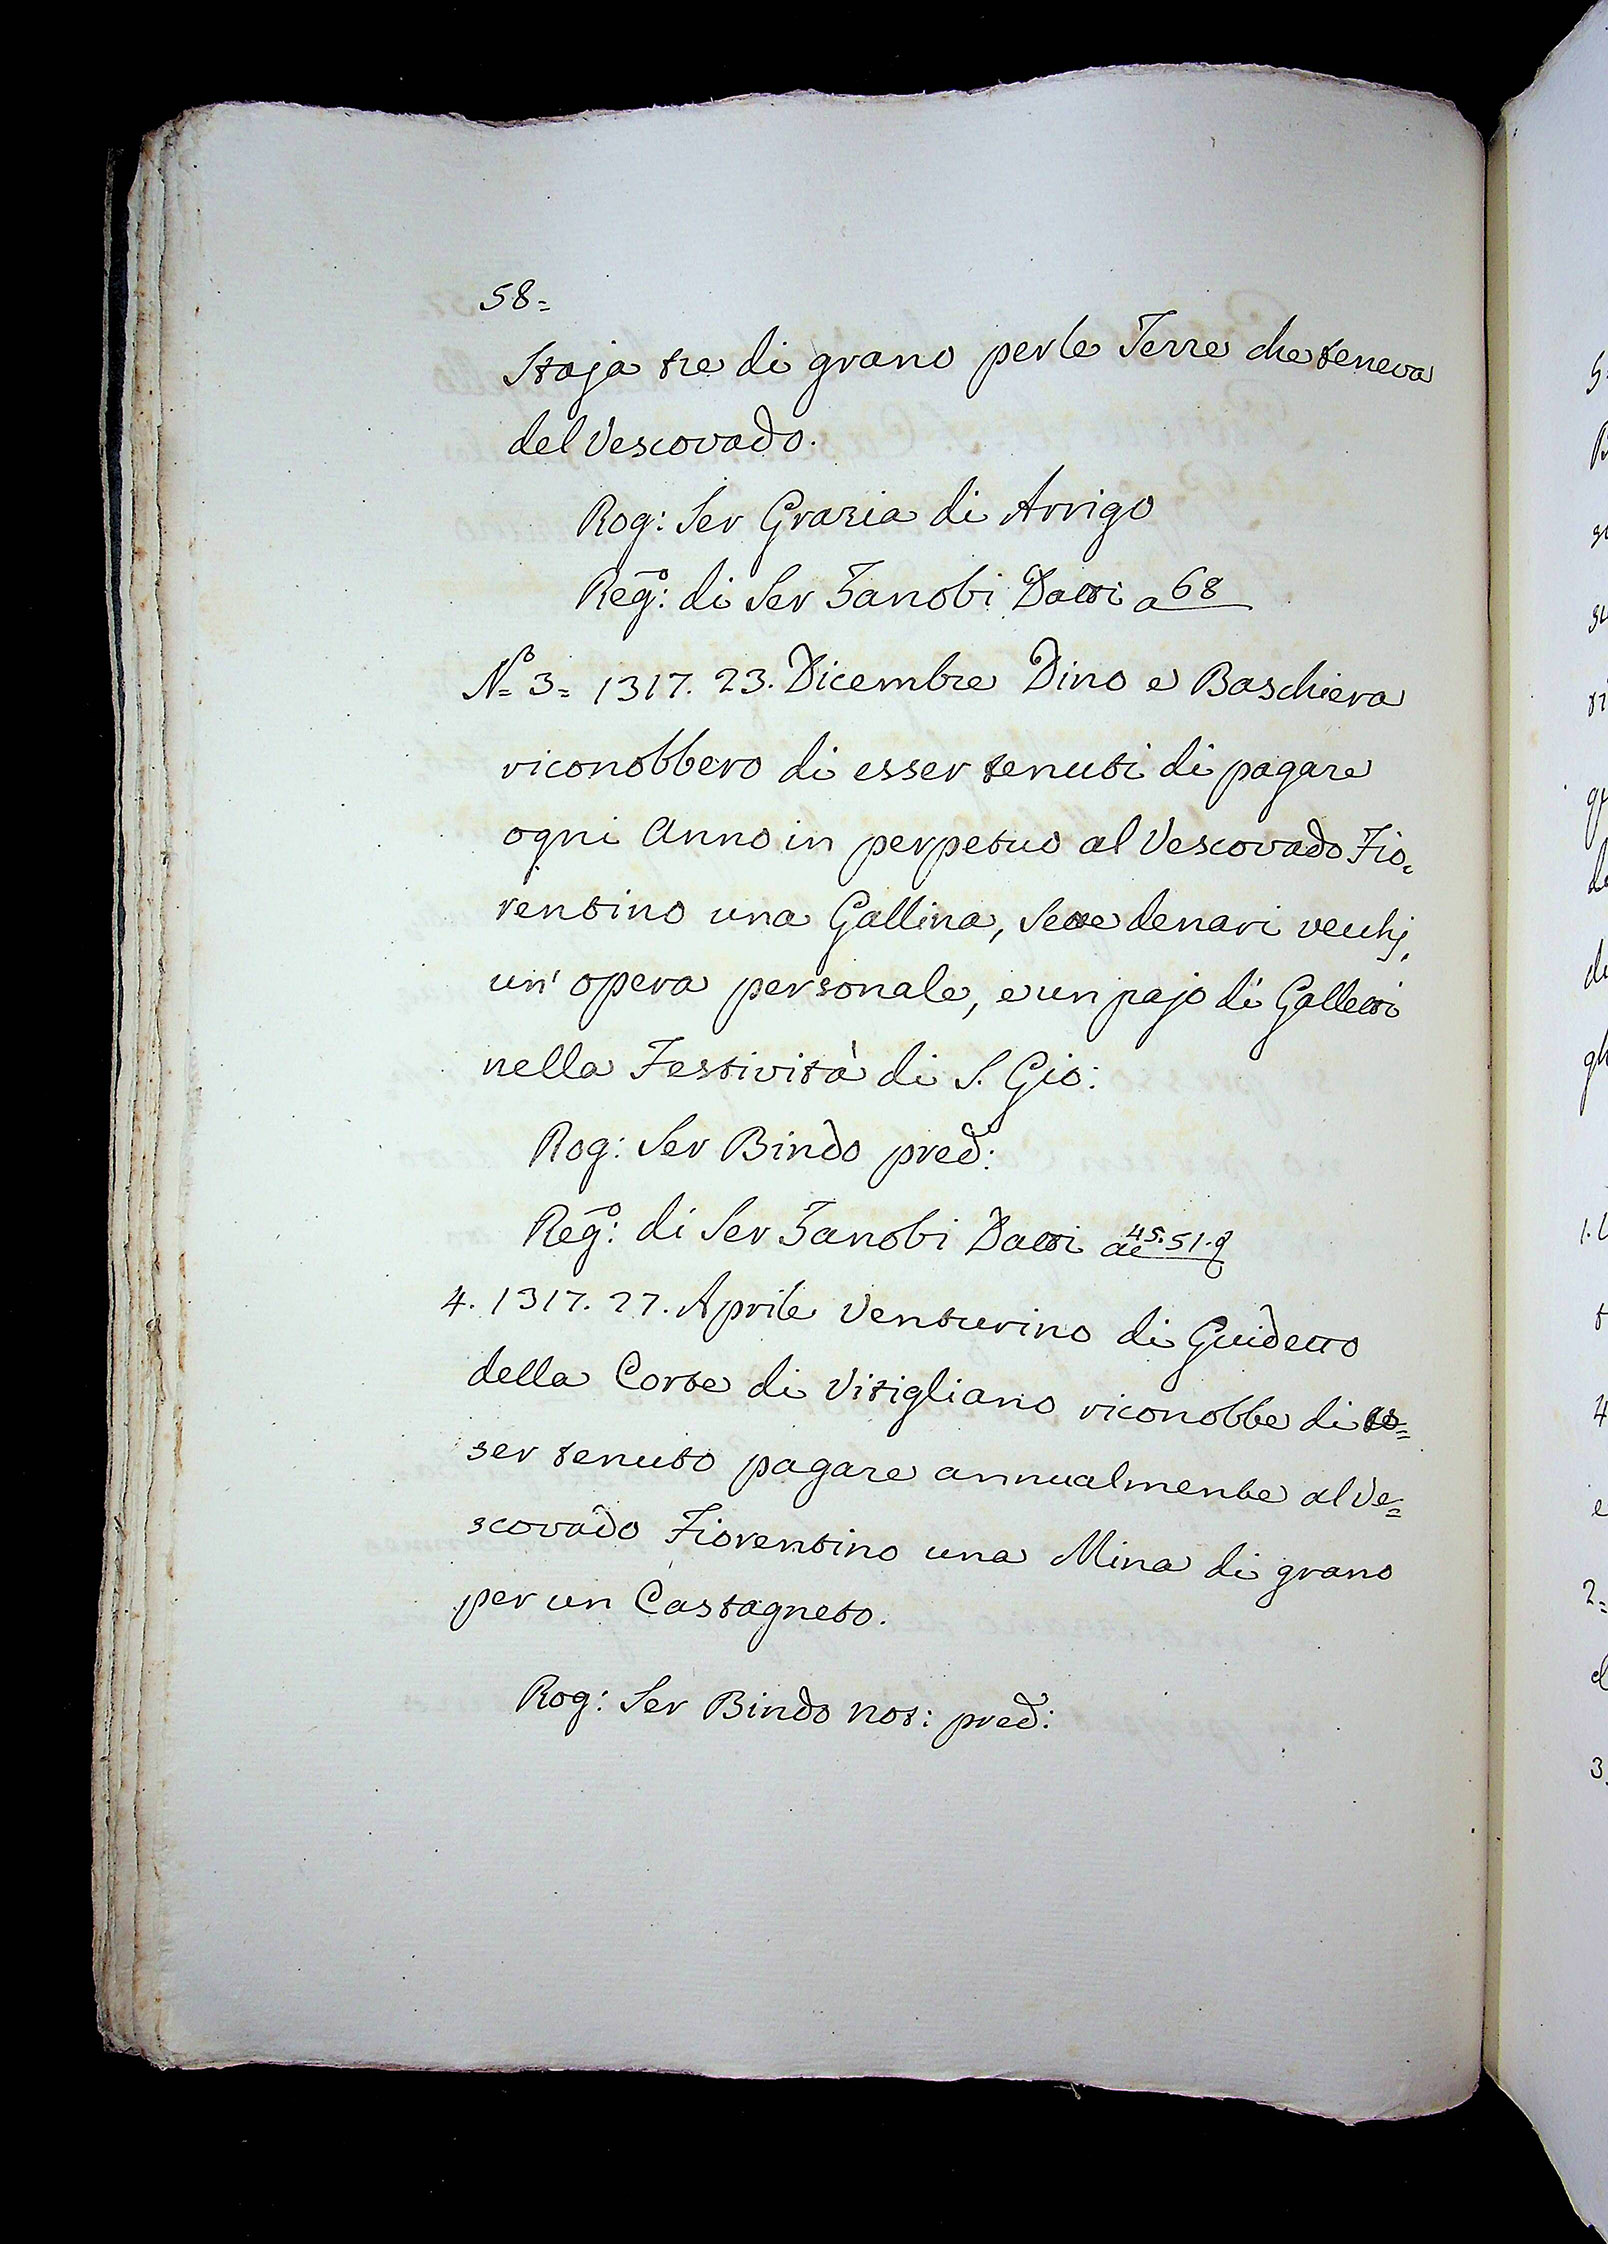 58=
Staja tre di grano per le Terre che teneva
del Vescovado.
Rog: Ser Grazia di Arrigo
Reg.o: di Ser Zanobi Datti a 68
N.o 3= 1317. 23. Dicembre Dino e Baschiera
riconobbero di esser tenuti di pagare
ogni Anno in perpetuo al Vescovado Fio=
rentino una Gallina, Sette denari vecchj,
un' opera personale, e un pajo di Galletti
nella Festività di S. Gio:
Rog: Ser Bindo pred:
Reg.o: di Ser Zanobi Datti ae 45.51.
4. 1317. 27. Aprile Venturino di Guidetto
della Corte di Vitigliano riconobbe di es=
ser tenuto pagare annualmente al Ve=
scovado Fiorentino una Mina di grano
per un Castagneto.
Rog: Ser Bindo not: pred: